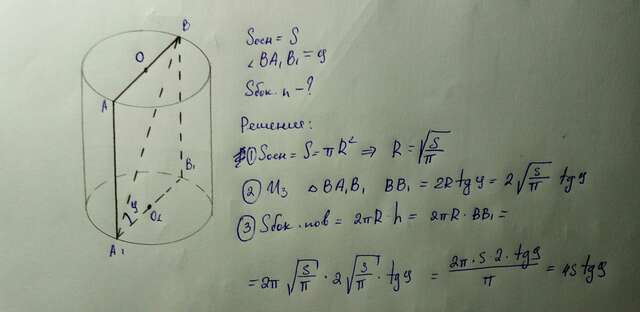 B
O
A
B₁
φ
O₁
A₁
Sосн = S
∠ BA₁B₁ = φ
Sбок. п - ?
Решение:
① Sосн = S = πR² ⇒ R = √(S/π)
② Из △ BA₁B₁ BB₁ = 2R tgφ = 2√(S/π) tgφ
③ Sбок. пов = 2πR · h = 2πR · BB₁ =
= 2π √(S/π) · 2√(S/π) · tgφ = (2π · S · 2 · tgφ)/π = 4S tgφ